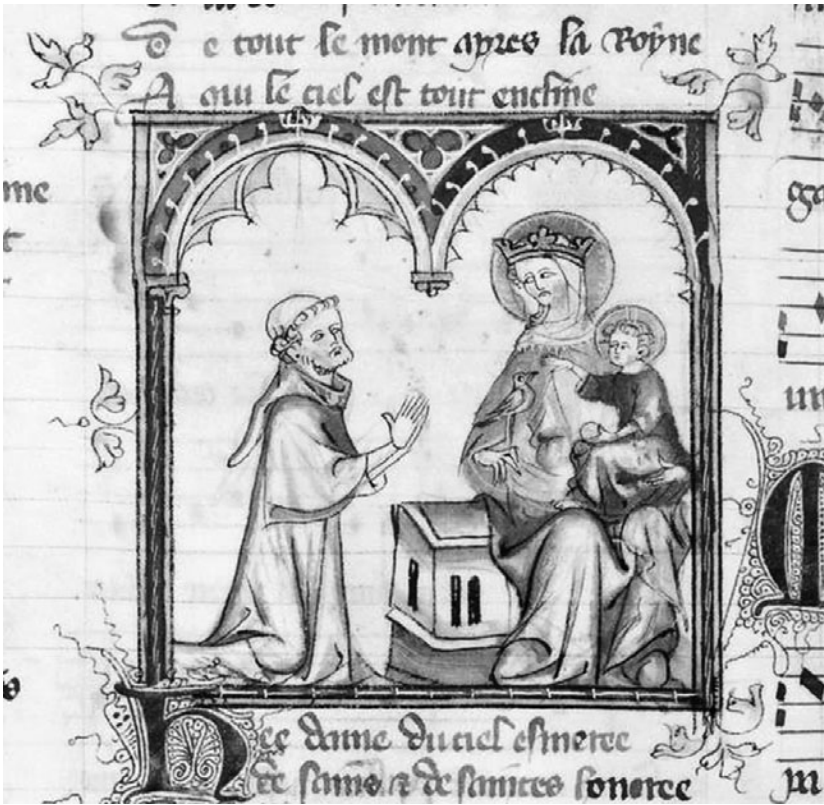 De tout le mont apres la Royne
A qui le ciel est tout encline
Hee dame du ciel esmeree
De sains ⁊ de saintes honoree